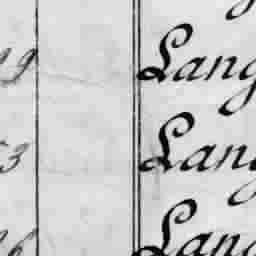 19 Lang
53 Lang
36 Lang